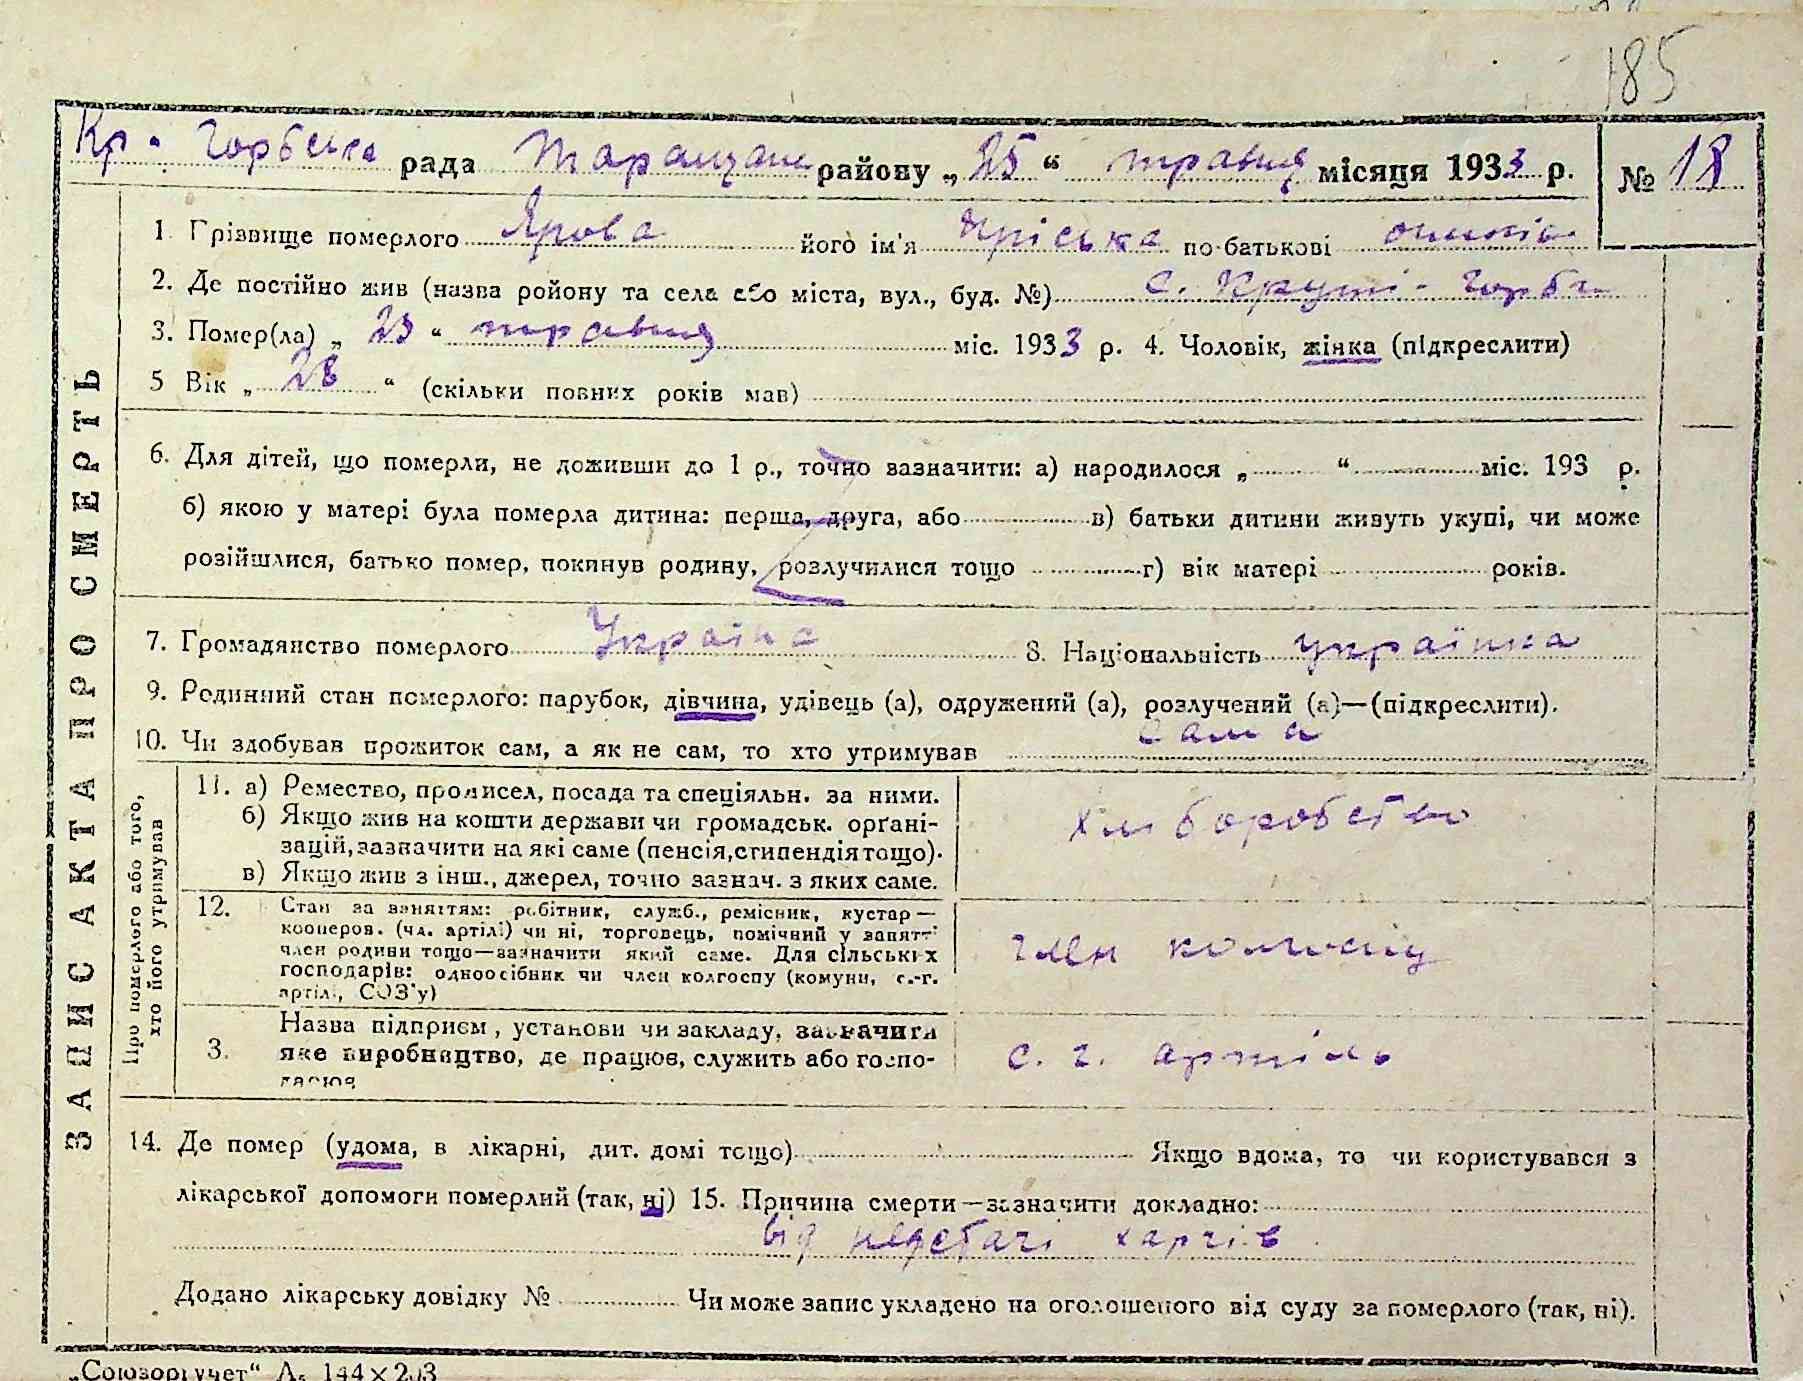 185
Кр. Горбська рада Таращан району „25“ травня місяця 1933 р. № 18
1. Прізвище померлого Ярова його ім'я Пріська по-батькові
2. Де постійно жив (назва ройону та села або міста, вул., буд. №) с. Круті-Горби
3. Помер(ла) „23“ травня міс. 1933 р. 4. Чоловік, жінка (підкреслити)
5 Вік „28“ (скільки повних років мав)
6. Для дітей, що померли, не доживши до 1 р., точно зазначити: а) народилося „ “ міс. 193 р.
б) якою у матері була померла дитина: перша, друга, або в) батьки дитини живуть укупі, чи може
розійшлися, батько помер, покинув родину, розлучилися тощо г) вік матері років.
7. Громадянство померлого Україна 8. Національність українка
9. Родинний стан померлого: парубок, дівчина, удівець (а), одружений (а), розлучений (а)—(підкреслити).
10. Чи здобував прожиток сам, а як не сам, то хто утримував сама
11. а) Ремество, промисел, посада та спеціяльн. за ними.
б) Якщо жив на кошти держави чи громадськ. орґані-
зацій, зазначити на які саме (пенсія, стипендія тощо).
в) Якщо жив з інш., джерел, точно зазнач. з яких саме.
хліборобство
12. Стан за заняттям: робітник, служб., ремісник, кустар—
кооперов. (чл. артілі) чи ні, торговець, помічний у занятті
член родини тощо—зазначити який саме. Для сільських
господарів: одноосібник чи член колгоспу (комуни, с.-г.
артілі, СОЗ'у)
член колгоспу
3. Назва підприєм, установи чи закладу, зазначити
яке виробництво, де працює, служить або госпо-
дарює
с. г. артіль
14. Де помер (удома, в лікарні, дит. домі тощо) Якщо вдома, то чи користувався з
лікарської допомоги померлий (так, ні) 15. Причина смерти—зазначити докладно:
від недстачі харчів
Додано лікарську довідку № Чи може запис укладено на оголошеного від суду за померлого (так, ні).
ЗАПИС АКТА ПРО СМЕРТЬ
Про померлого або того,
хто його утримував
„Союзоргучет“ 144×203